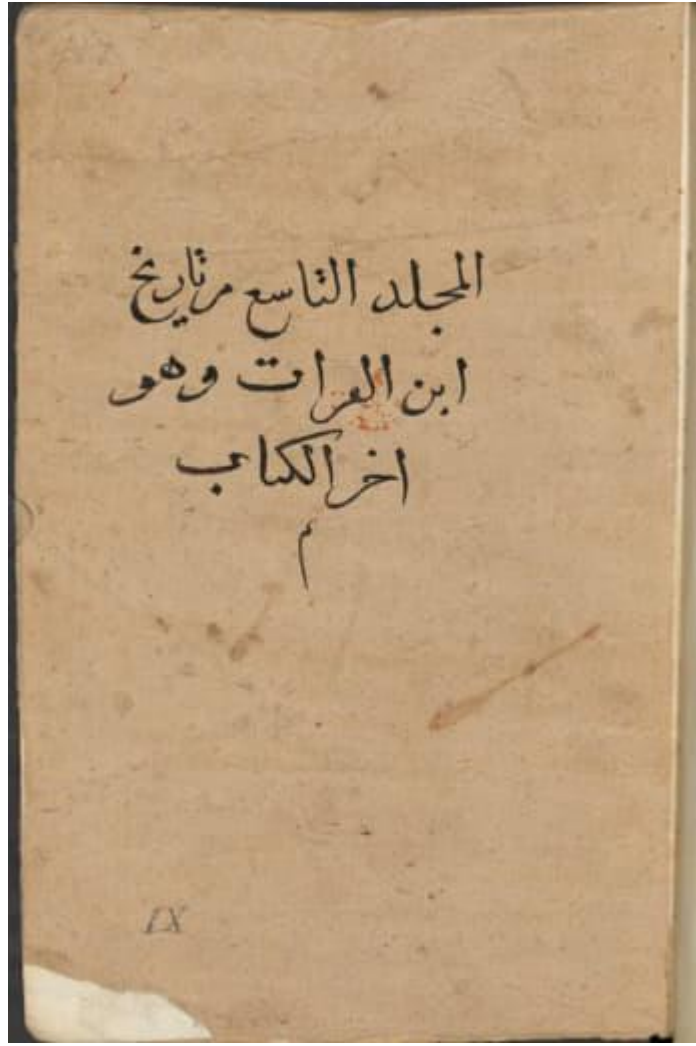 المجلد التاسع من تاريخ
ابن الفرات وهو
اخر الكتاب
م
IX